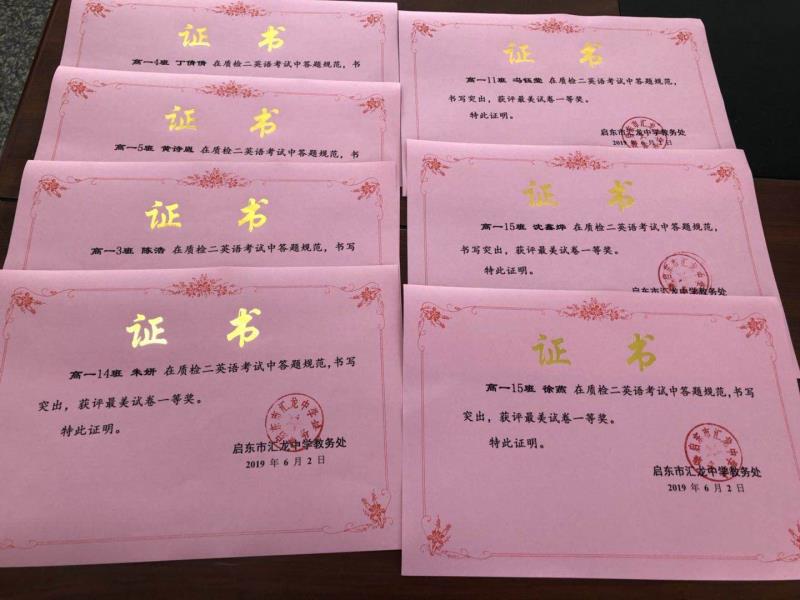 证 书
高一4班 丁倩倩 在质检二英语考试中答题规范，书
证 书
高一5班 黄诗雨 在质检二英语考试中答题规范，书
证 书
高一3班 陈浩 在质检二英语考试中答题规范，书写
证 书
高一14班 朱妍 在质检二英语考试中答题规范，书写
突出，获评最美试卷一等奖。
特此证明。
启东市汇龙中学教务处
2019 年 6 月 2 日
证 书
高一11班 冯钰莹 在质检二英语考试中答题规范，
书写突出，获评最美试卷一等奖。
特此证明。
启东市汇龙中学教务处
2019 年 6 月 2 日
证 书
高一15班 沈鑫烨 在质检二英语考试中答题规范，
书写突出，获评最美试卷一等奖。
特此证明。
启东市汇龙中学教务处
证 书
高一15班 徐燕 在质检二英语考试中答题规范，书写
突出，获评最美试卷一等奖。
特此证明。
启东市汇龙中学教务处
2019 年 6 月 2 日